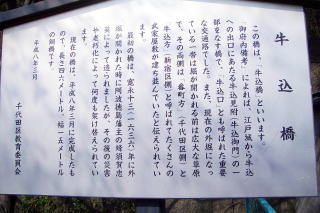 牛込橋
この橋は、牛込橋といいます。
『御府内備考』によれば、江戸城から牛込
への出口にあたる牛込見附(牛込御門)の一
部をなす橋で、「牛込口」とも呼ばれた重要
な交通路でした。また、現在の外堀になっ
ている一帯は堀が開かれる前は広大な草原
で、その両側は「番町方」(千代田区側)と
牛込方(新宿区側)と呼ばれてたくさんの
武家屋敷が建ち並んでいたと伝えられてい
ます。
最初の橋は、寛永十三(一六三六)年に外
堀が開かれた時に阿波徳島藩主の蜂須賀忠
英によって造られましたが、その後の災害
や老朽化によって何度も架け替えられてい
ます。
現在の橋は、平成八年三月に完成したも
ので、長さ四六メートル、幅一五メートル
の鋼橋です。
平成八年三月
千代田区教育委員会